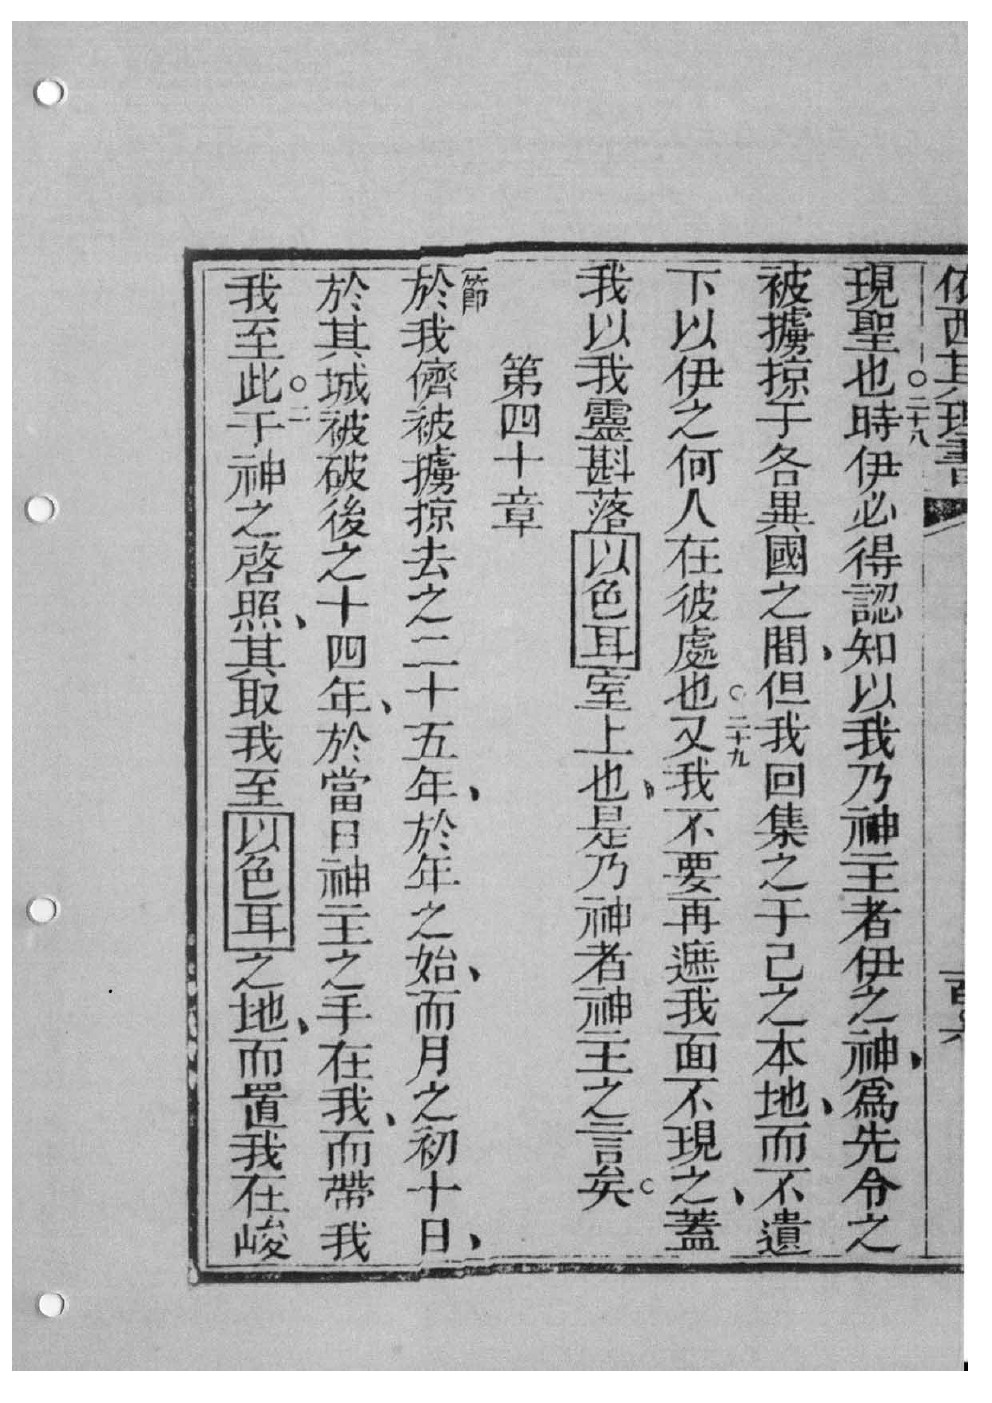 依西其理書
百六
現聖也○二十八時伊必得認知以我乃神主者伊之神、爲先令之
被擄掠于各異國之間、但我回集之于己之本地、而不遺
下以伊之何人在彼處也○二十九又我不要再遮我面不現之、蓋
我以我靈斟落以色耳室上也、是乃神者神主之言矣○
第四十章
一節於我儕被擄掠去之二十五年、於年之始、而月之初十日、
於其城被破後之十四年、於當日神主之手在我、而帶我
我至此○二于神之啓照、其取我至以色耳之地、而置我在峻